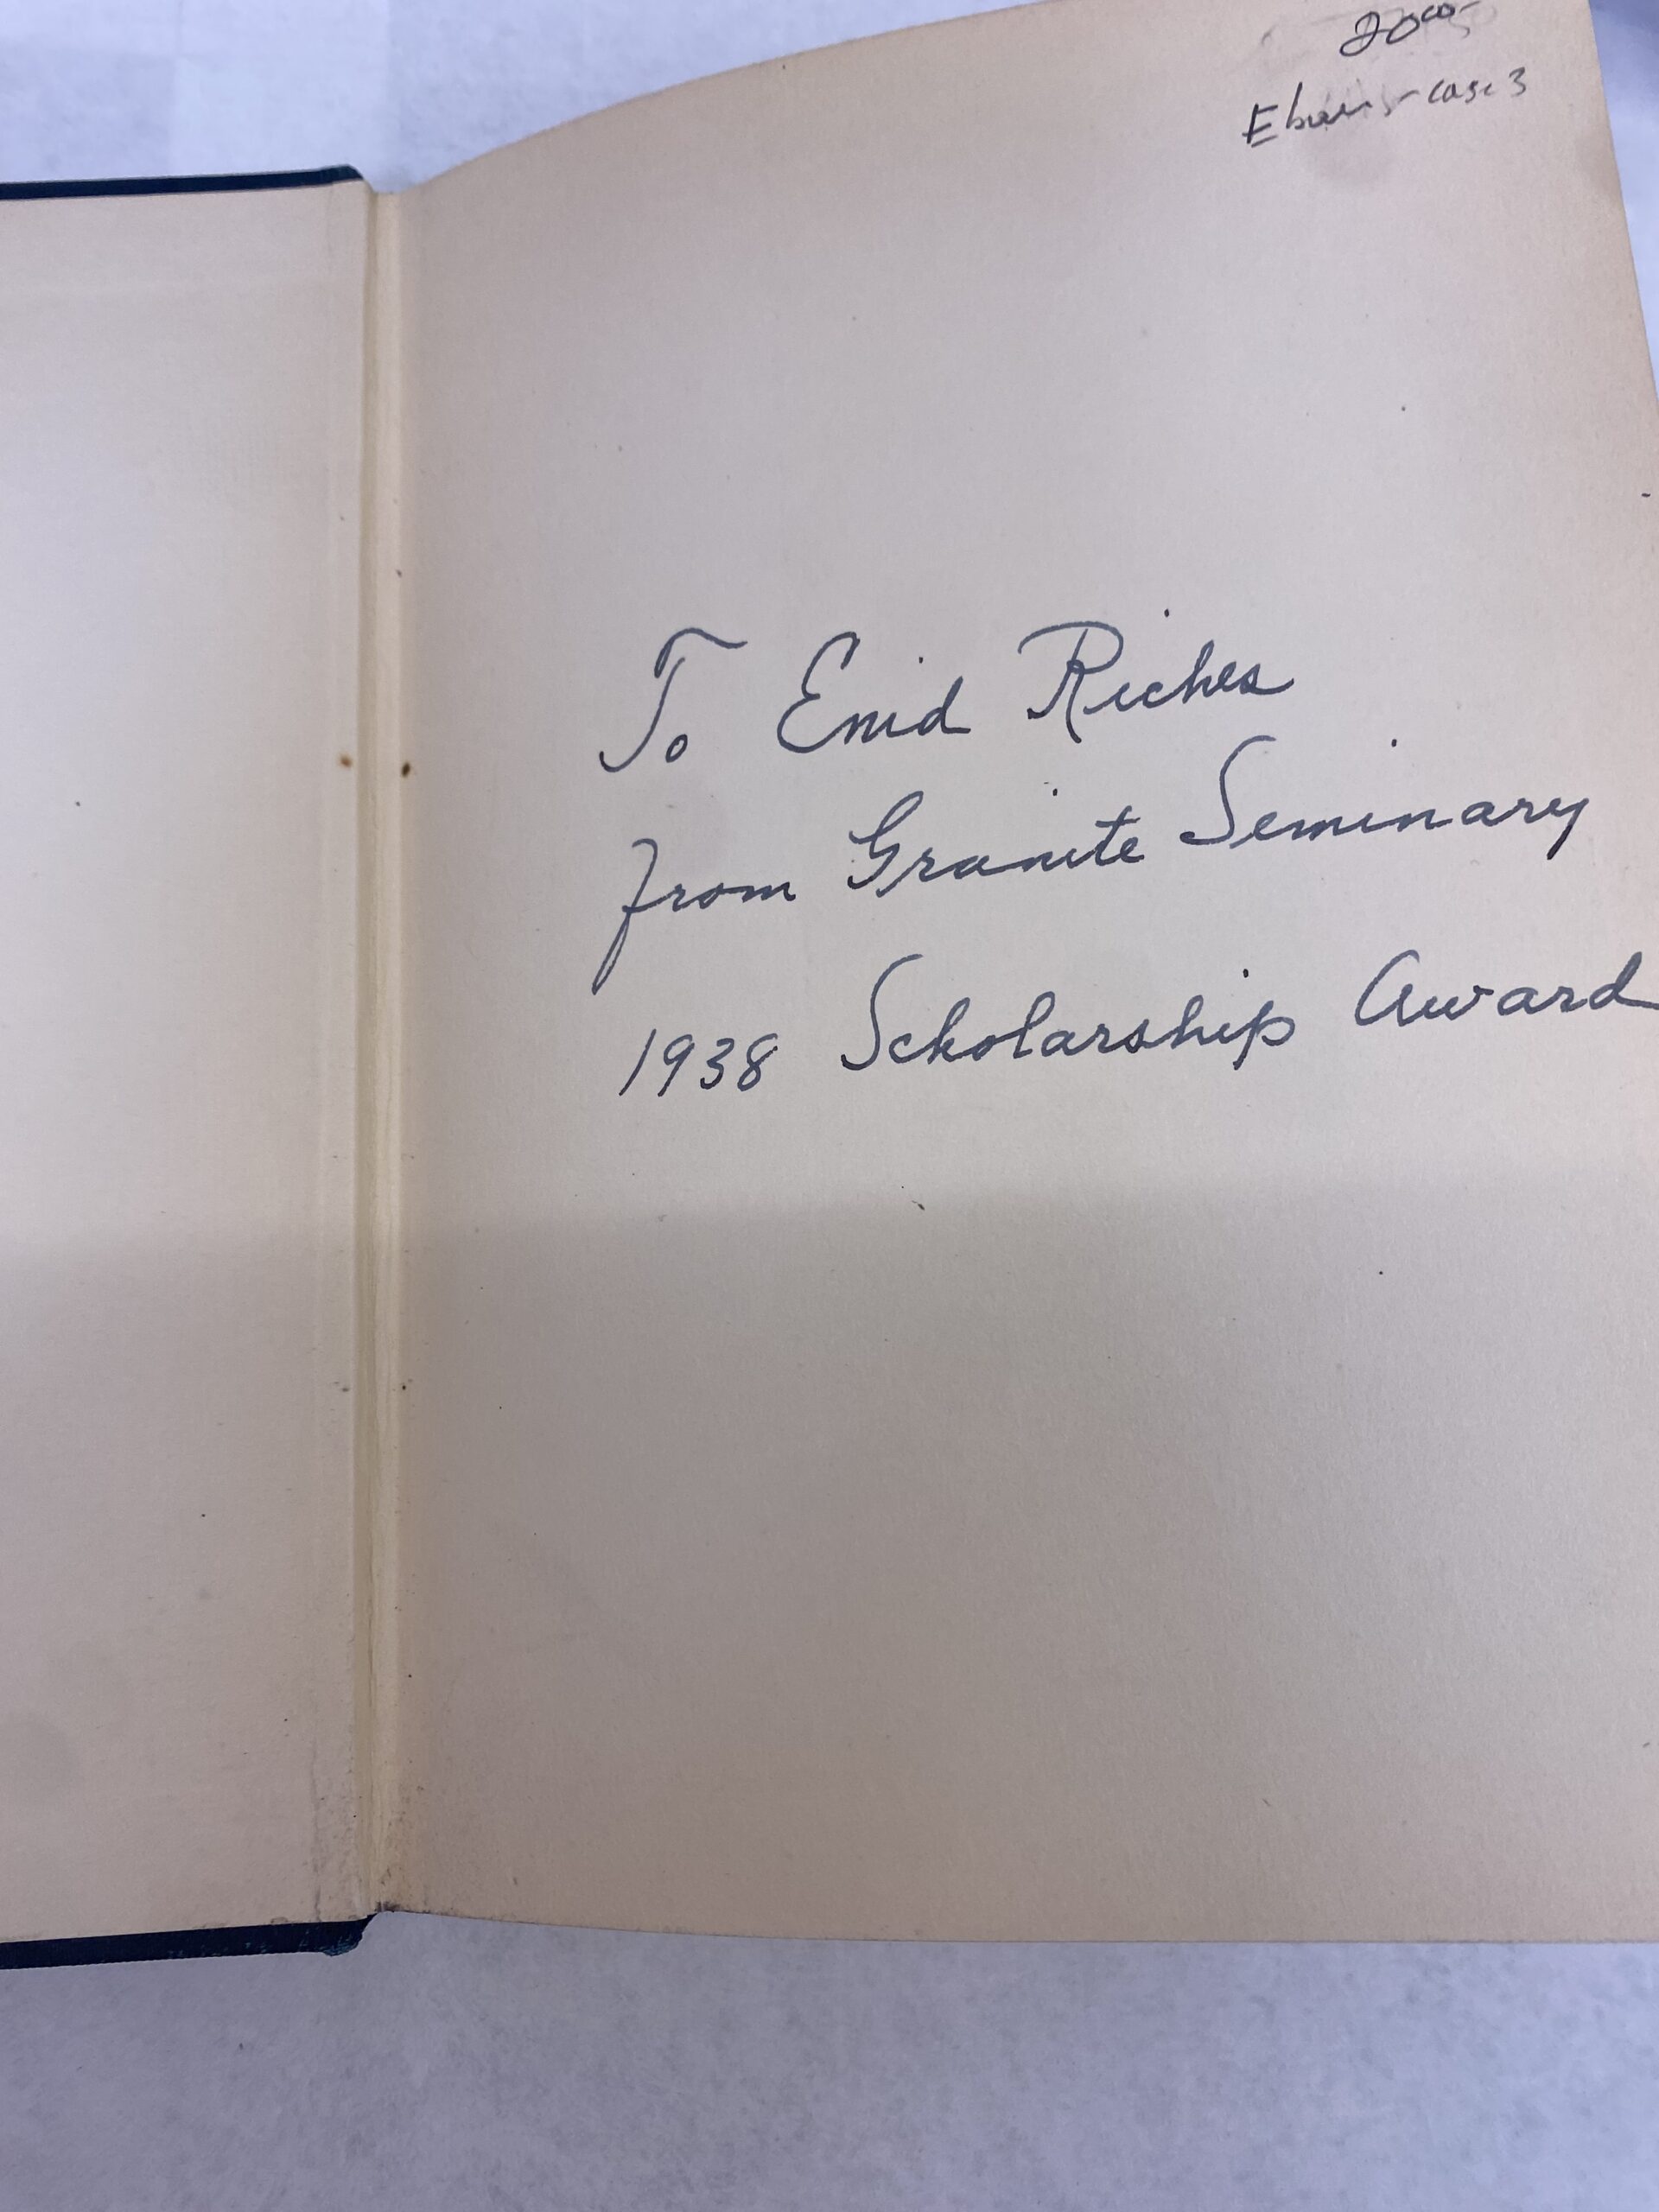 20
case 3
To Enid Riches
from Granite Seminary
1938 Scholarship Award